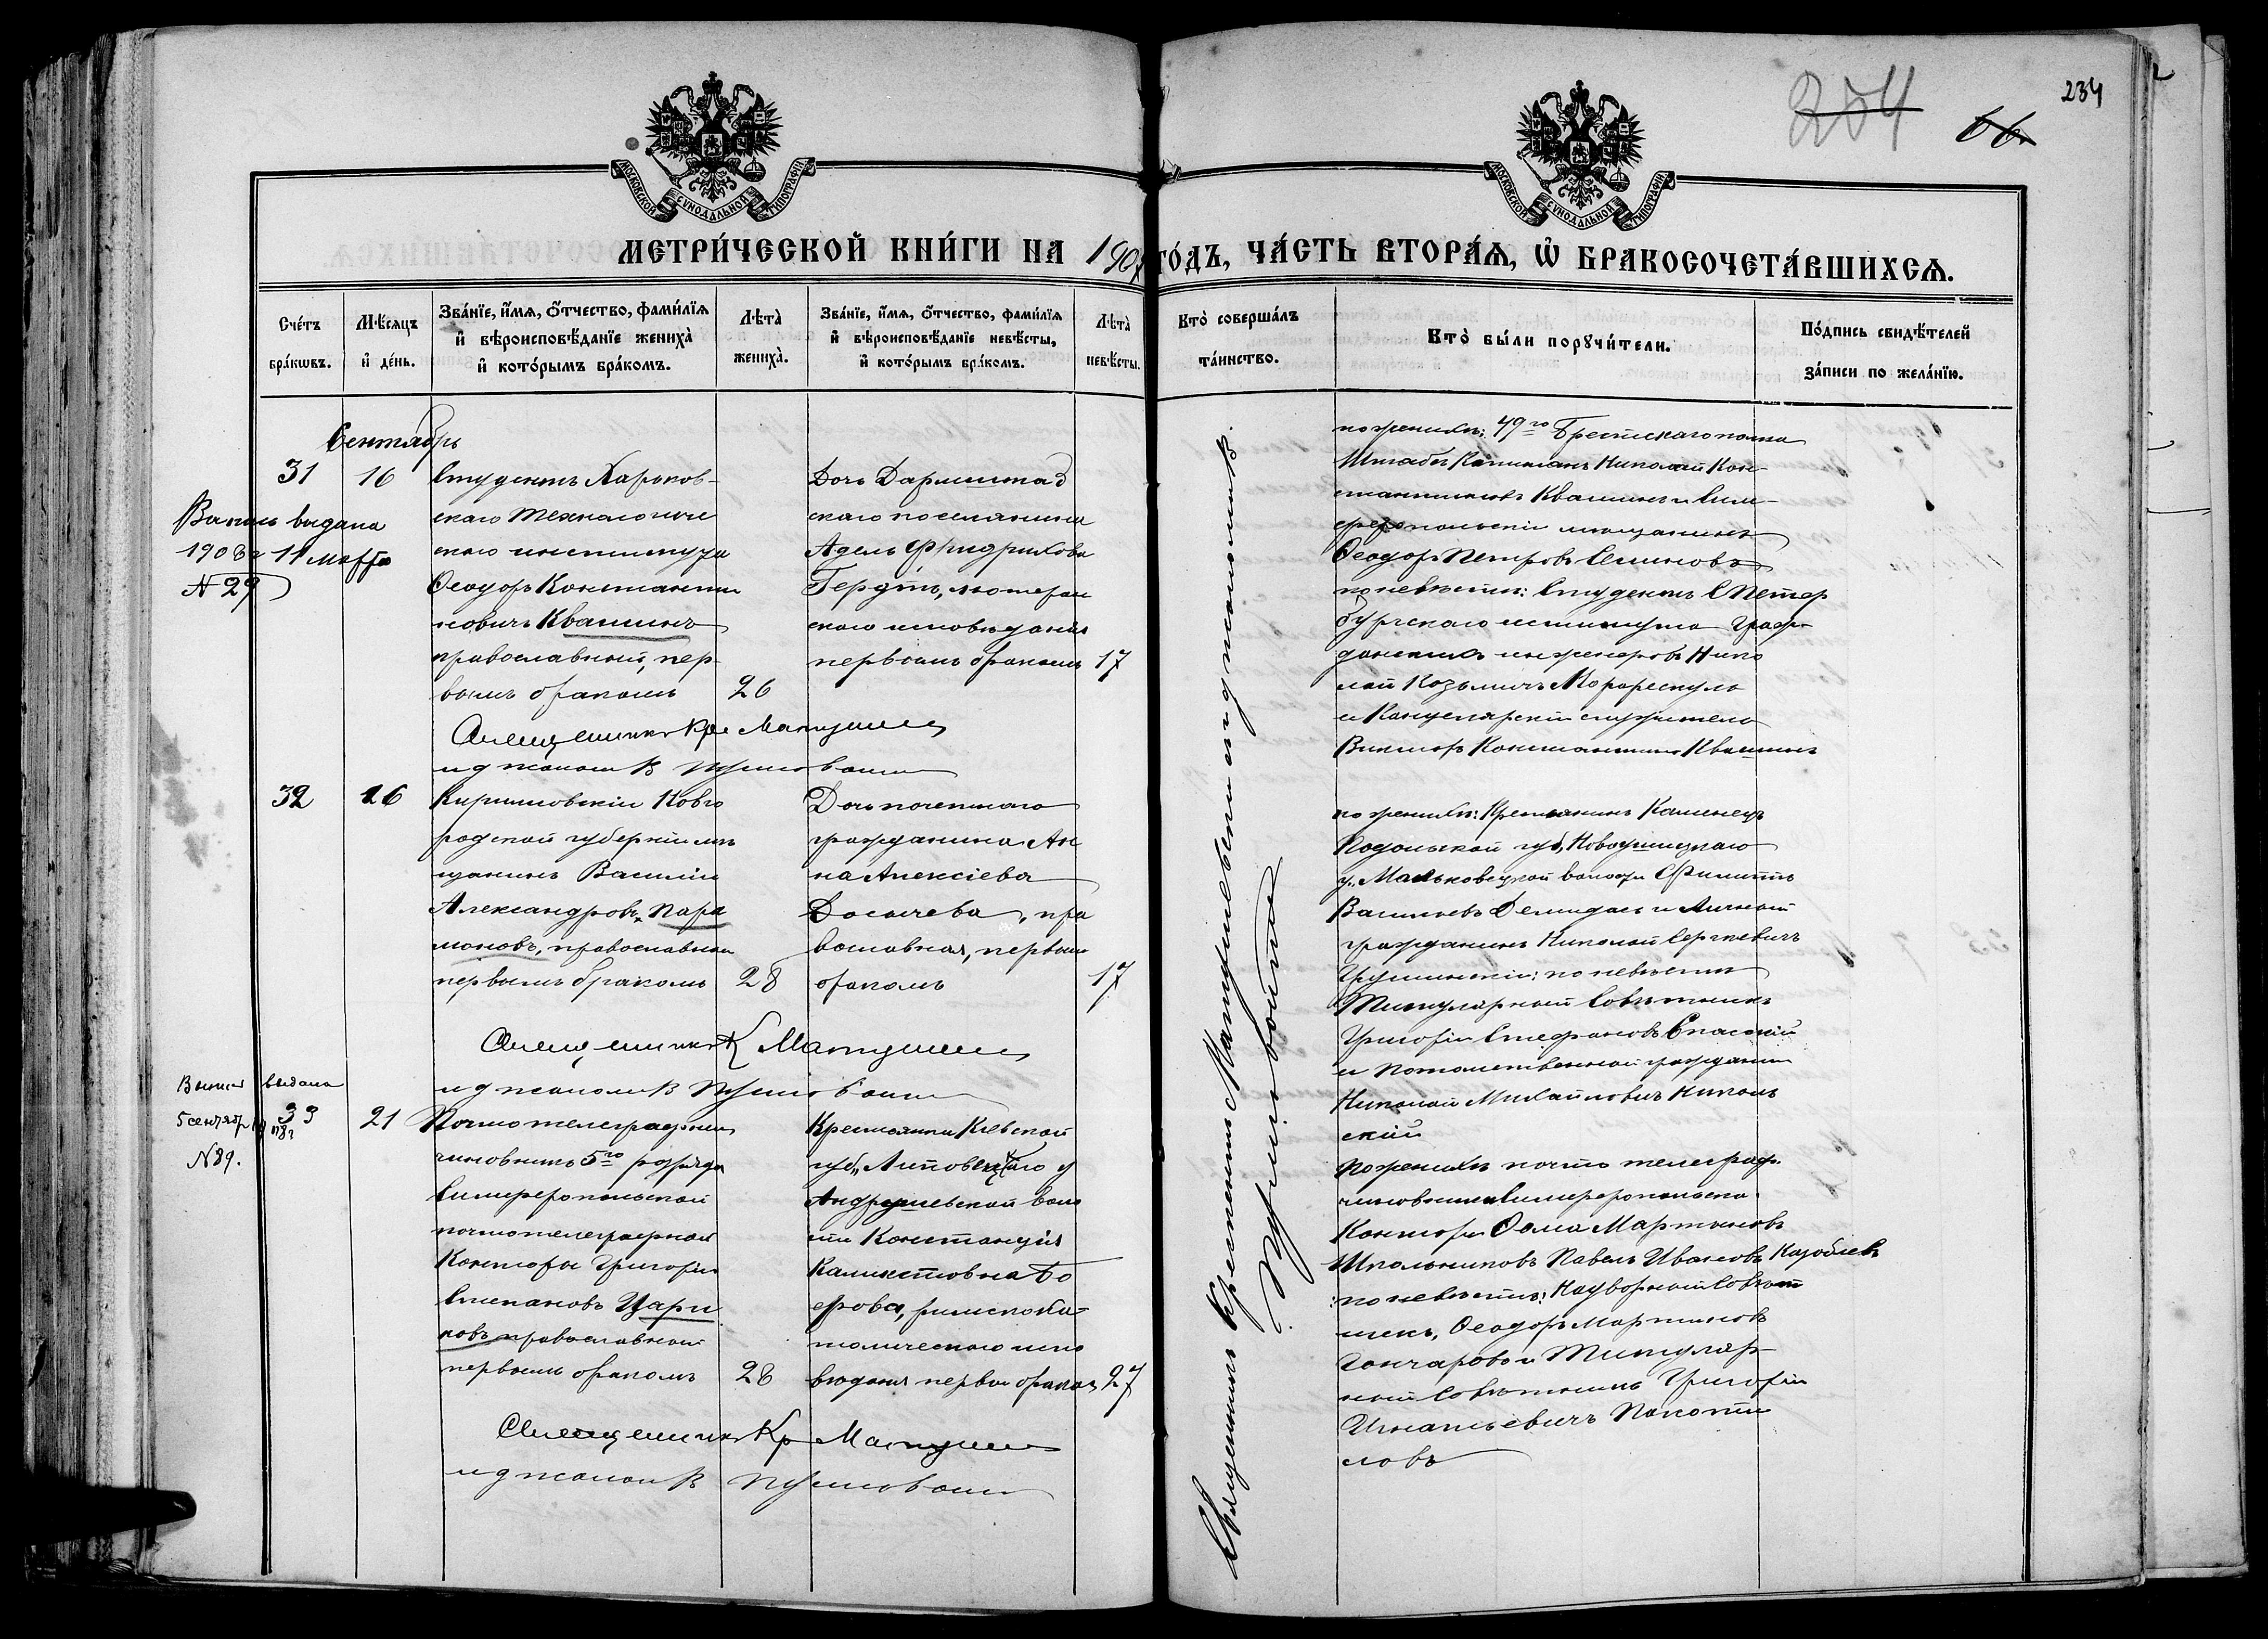 234
254
66
МОСКОВСКОЙ СУНОДАЛЬНОЙ ТИПОГРАФІИ
МОСКОВСКОЙ СУНОДАЛЬНОЙ ТИПОГРАФІИ
МЕТРИ́ЧЕСКОЙ КНИ́ГИ НА 1907 ГО́ДЪ, ЧА́СТЬ ВТОРА́Ѧ, Ѡ҆ БРАКОСОЧЕТА́ВШИХСѦ.
Сче́тъ бра́кѡвъ.
Мѣ́сяцъ и҆ де́нь.
Зва́нїе, и҆́мѧ, ѻ҆́тчество, фами́лїѧ и҆ вѣроисповѣ́данїе жениха̀ и҆ кото́рымъ бра́комъ.
Лѣта̀ жениха̀.
Зва́нїе, и҆́мѧ, ѻ҆́тчество, фами́лїѧ и҆ вѣроисповѣ́данїе невѣ́сты, и҆ кото́рымъ бра́комъ.
Лѣта̀ невѣ́сты.
Кто̀ соверша́лъ та́инство.
Кто̀ бы́ли порꙋчи́тели.
По́дпись свидѣ́телей за́писи по жела́нїю.
Сентябрь
31
16
выдана
1908 г 11 марта
N 29
Студентъ Харьков-
скаго Технологиче
скаго института
Ѳеодоръ Константи
новичъ Квашинъ
православный, пер-
вымъ бракомъ
26
Дочь Дармштад
скаго поселянина
Адель Фридрихова
Гердтъ, лютеран
скаго исповѣданія
первымъ бракомъ
17
по женихѣ: 49го Брестскаго полка
Штабсъ Капитанъ Николай Кон-
стантиновъ Квашинъ и Сим-
феропольскій мѣщанинъ
Ѳеодоръ Петровъ Семиновъ
по невѣстѣ: Студентъ С Петер
бургскаго института Граж-
данскихъ инженеровъ Нико
лай Козьмичъ
и Канцелярскій служитель
Викторъ Константинов Квашинъ
Священникъ Кр Матушев
и д псаломщ В Путиловъ
32
16
Кирилловскій Новго
родской губерніи мѣ
щанинъ Василій
Александровъ Пара
моновъ, православный
первымъ бракомъ
28
Дочь почетнаго
гражданина Ан
на Алексіева
пра
вославная, первым
бракомъ
17
по женихѣ: Крестьянинъ Каменецъ
Подольской губ, Новоушицкаго
у. Маньковецкой волости Филиппъ
Васильевъ и Личный
гражданинъ Николай Сергѣевичъ
по невѣстѣ
Титулярный Совѣтникъ
Григорій Стефановъ Спасскій
и потомственный гражданин
Николай Михайловичъ Николь
скій
Священникъ К Матушев
и д псаломщ В
выдана
5 сентяб 1908 г
N 89.
33
21
Почтотелеграфный
чиновникъ 5го разряда
Симферопольской
почтотелеграфной
Конторы Григорій
Степановъ Цари
ковъ православный
первымъ бракомъ
28
Крестьянка Кіевской
губ, Липовецкаго у
Андрушевской воло
сти Констанція
Каликстовна Бо
ерова, римско ка-
толическаго испо
вѣданія первым бракомъ
27
По женихѣ почто телеграф.
чиновники Симферопольско.
Конторы Ѳома Мартыновъ
Школьниковъ Павелъ Ивановъ
по невѣстѣ: Надворный Совѣт
никъ, Ѳеодоръ Мартиновъ
Гончаровъ и Титуляр-
ный Совѣтникъ Григорій
Игнатьевичъ
ловъ
Священникъ Кр Матушев
и д псаломщ В
Священникъ Крискентъ Матушевскій и д псаломщика В.